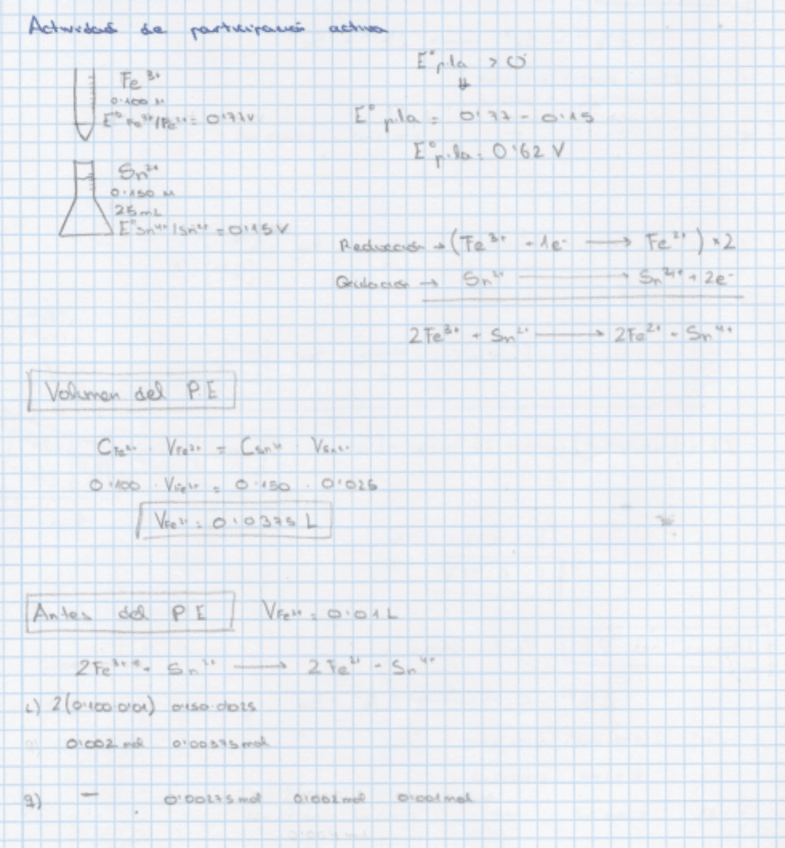 Actividad de participación activa
Fe³⁺
0.100 M
E° Fe³⁺/Fe²⁺ = 0'77V
Sn²⁺
0.150 M
25 mL
E° Sn⁴⁺/Sn²⁺ = 0'15V
E° pila > 0
⇓
E° pila = 0'77 - 0'15
E° pila = 0'62 V
Reducción → (Fe³⁺ + 1e⁻ → Fe²⁺) × 2
Oxidación → Sn²⁺ → Sn⁴⁺ + 2e⁻
2Fe³⁺ + Sn²⁺ → 2Fe²⁺ + Sn⁴⁺
Volumen del PE
C · V = C · V
0.100 · V = 0.150 · 0'025
V = 0'0375 L
Antes del PE V = 0.01 L
2Fe³⁺ + Sn²⁺ → 2Fe²⁺ + Sn⁴⁺
i) 2(0.100·0'01) 0.150·0'025
0'002 mol 0'00375 mol
— 0'00275 mol 0'002 mol 0'001 mol